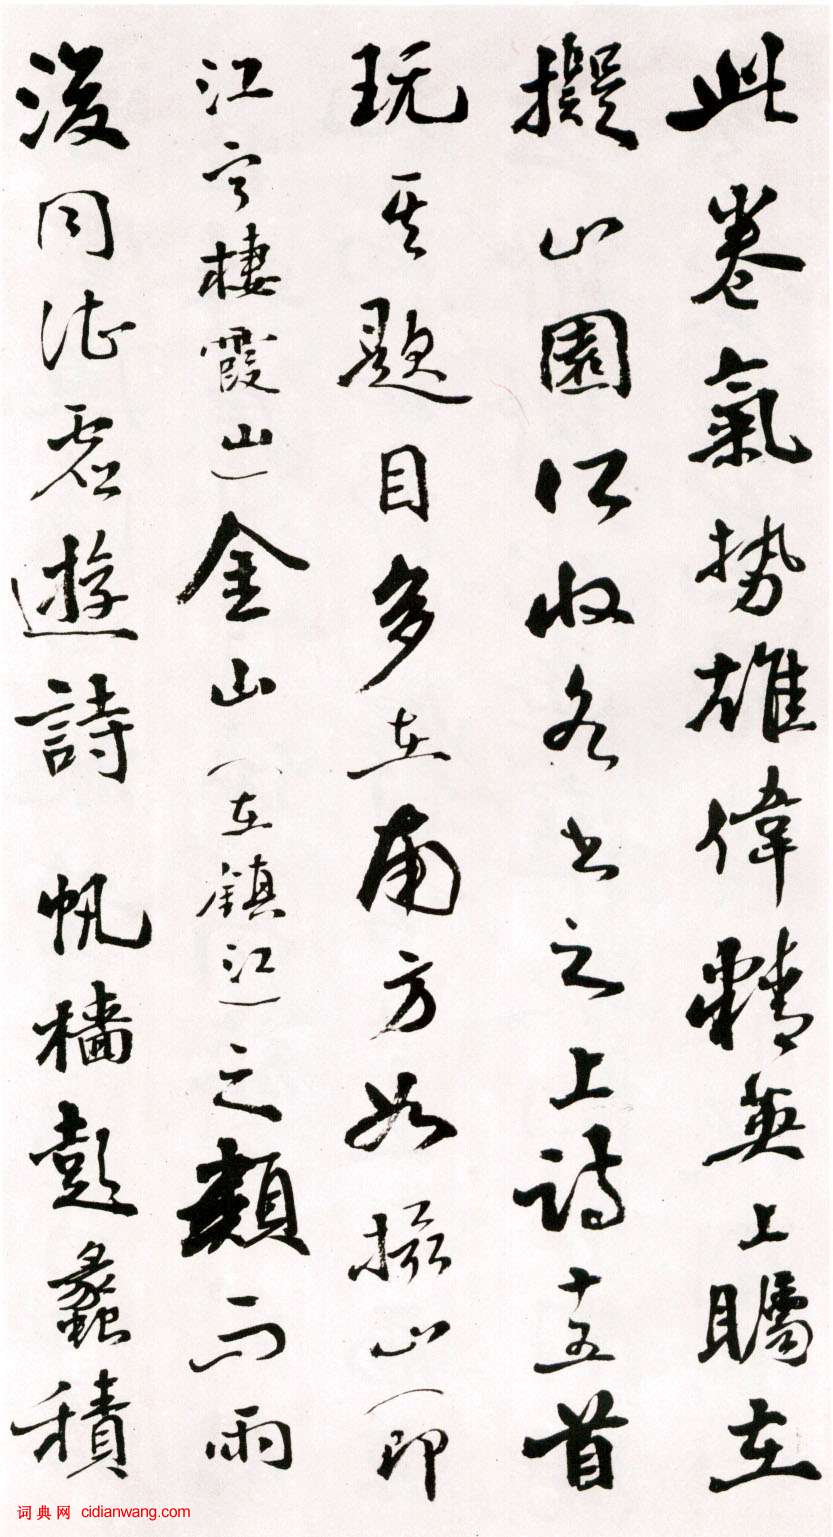 此卷氣勢雄偉精英上矚在
擬山園所收各書之上詩十五首
玩其題目多在南方如攝山(即
江寧棲霞山)金山(在鎮江)之類而雨
後同虛遊詩 帆檣彭蠡積
词典网 cidianwang.com